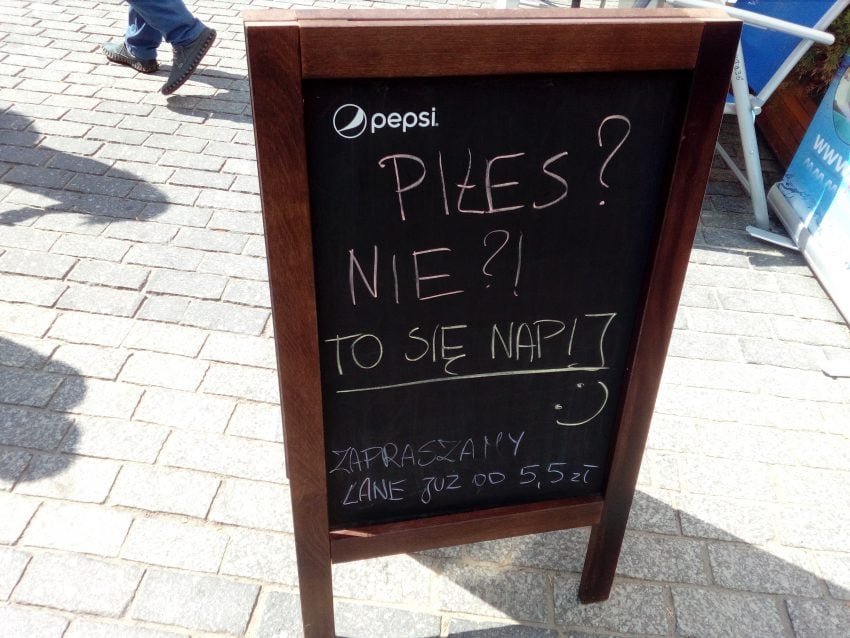 pepsi
PIŁEŚ?
NIE?!
TO SIĘ NAPIJ
:)
ZAPRASZAMY
LANE JUŻ OD 5,5 zł
www.